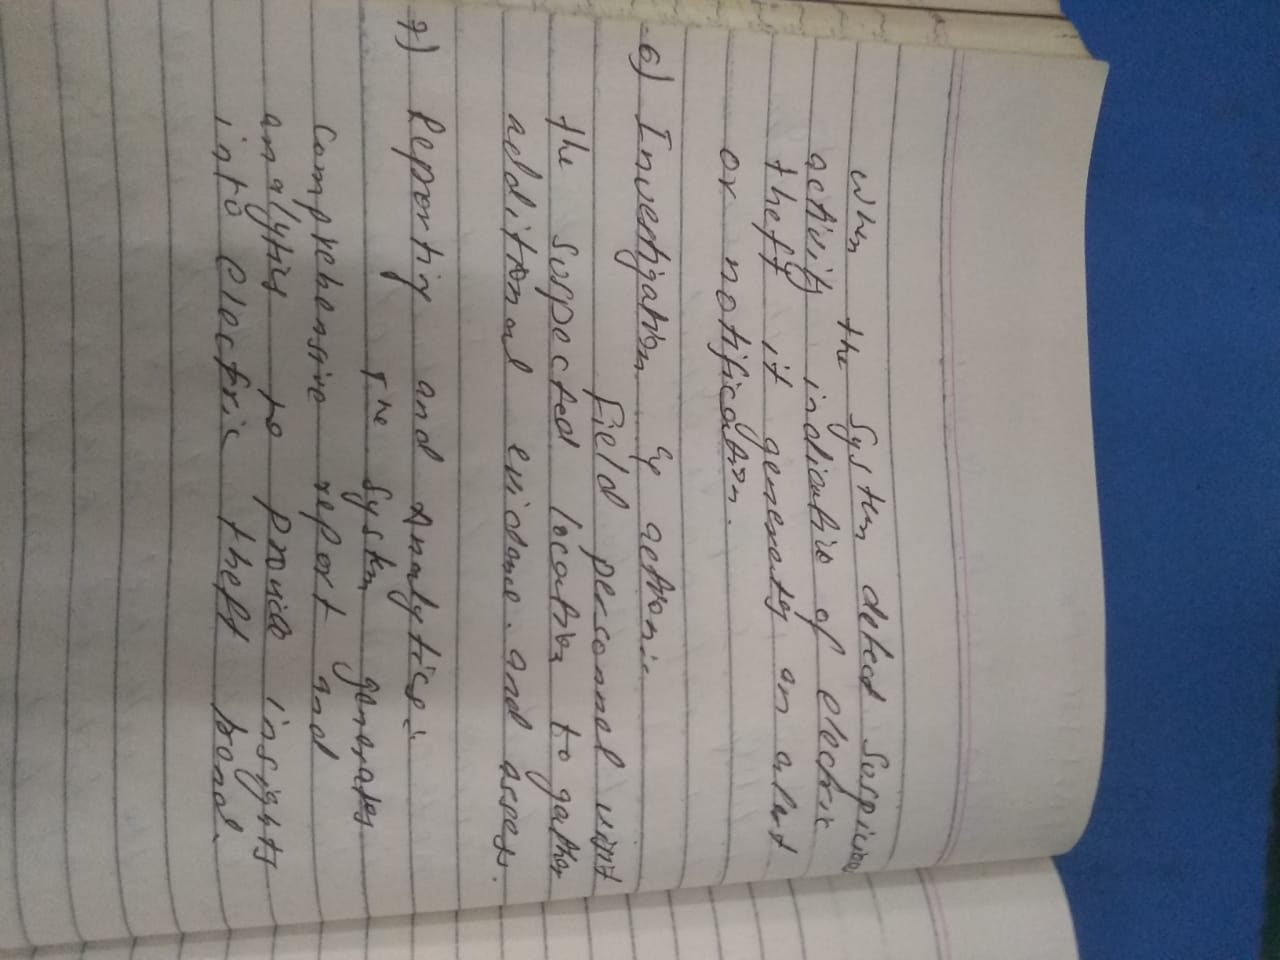 When the system detect suspicious
activity indicative of electric
theft it generates an alert
or notification.
6) Investigation & action :-
field personnel visit
the suspected location to gather
additional evidence. and assess.
7) Reporting and Analytics :-
The system generates
comprehensive report and
analytics to provide insights
into electric theft